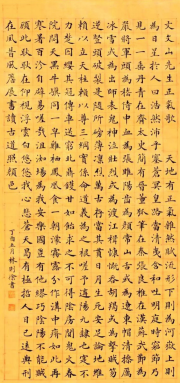 文山先生正氣歌 天地有正氣雜然賦流形下則為河嶽上則
為日星於人曰浩然沛乎塞蒼冥皇路當清夷含和吐明庭時窮節乃
見一一垂丹青在齊太史簡在晉董狐筆在秦張良椎在漢蘇武節為
嚴將軍頭為嵇侍中血為張睢陽齒為顏常山舌或為遼東帽清操厲
冰雪或為出師表鬼神泣壯烈或為渡江楫慷慨吞胡羯或為擊賊笏
逆豎頭破裂是氣所磅礴凜烈萬古存當其貫日月生死安足論地維
賴以立天柱賴以尊三綱實係命道義為之根嗟予遘陽九隸也實不
力楚囚纓其冠傳車送窮北鼎鑊甘如飴求之不可得陰房闃鬼火春
院閟天黑牛驥同一皂雞棲鳳凰食一朝濛霧露分作溝中瘠如此再
寒暑百沴自辟易嗟哉沮洳場為我安樂國豈有他繆巧陰陽不能賊
顧此耿耿在仰視浮雲白悠悠我心悲蒼天曷有極哲人日已遠典刑
在夙昔風簷展書讀古道照顏色
丁酉五月林則書